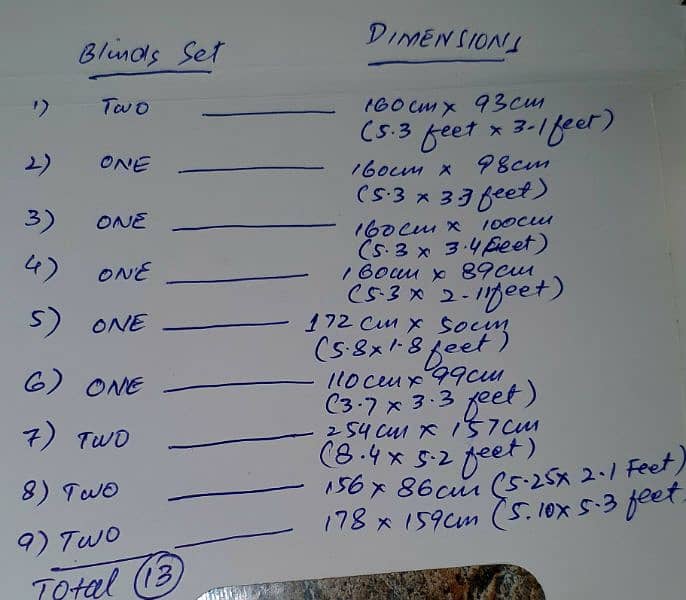 Blinds Set DIMENSIONS
1) TWO 160cm x 93cm
(5.3 feet x 3-1 feet)
2) ONE 160cm x 98cm
(5.3 x 33 feet)
3) ONE 160cm x 100cm
(5.3 x 3.4 feet)
4) ONE 160cm x 89cm
(5-3 x 2-11 feet)
5) ONE 172 cm x 50cm
(5.8x1.8 feet)
6) ONE 110cm x 99cm
(3.7 x 3.3 feet)
7) TWO 254cm x 157cm
(8.4 x 5.2 feet)
8) TWO 156 x 86cm (5.25x 2.1 Feet)
9) TWO 178 x 159cm (5.10x 5.3 feet
Total 13